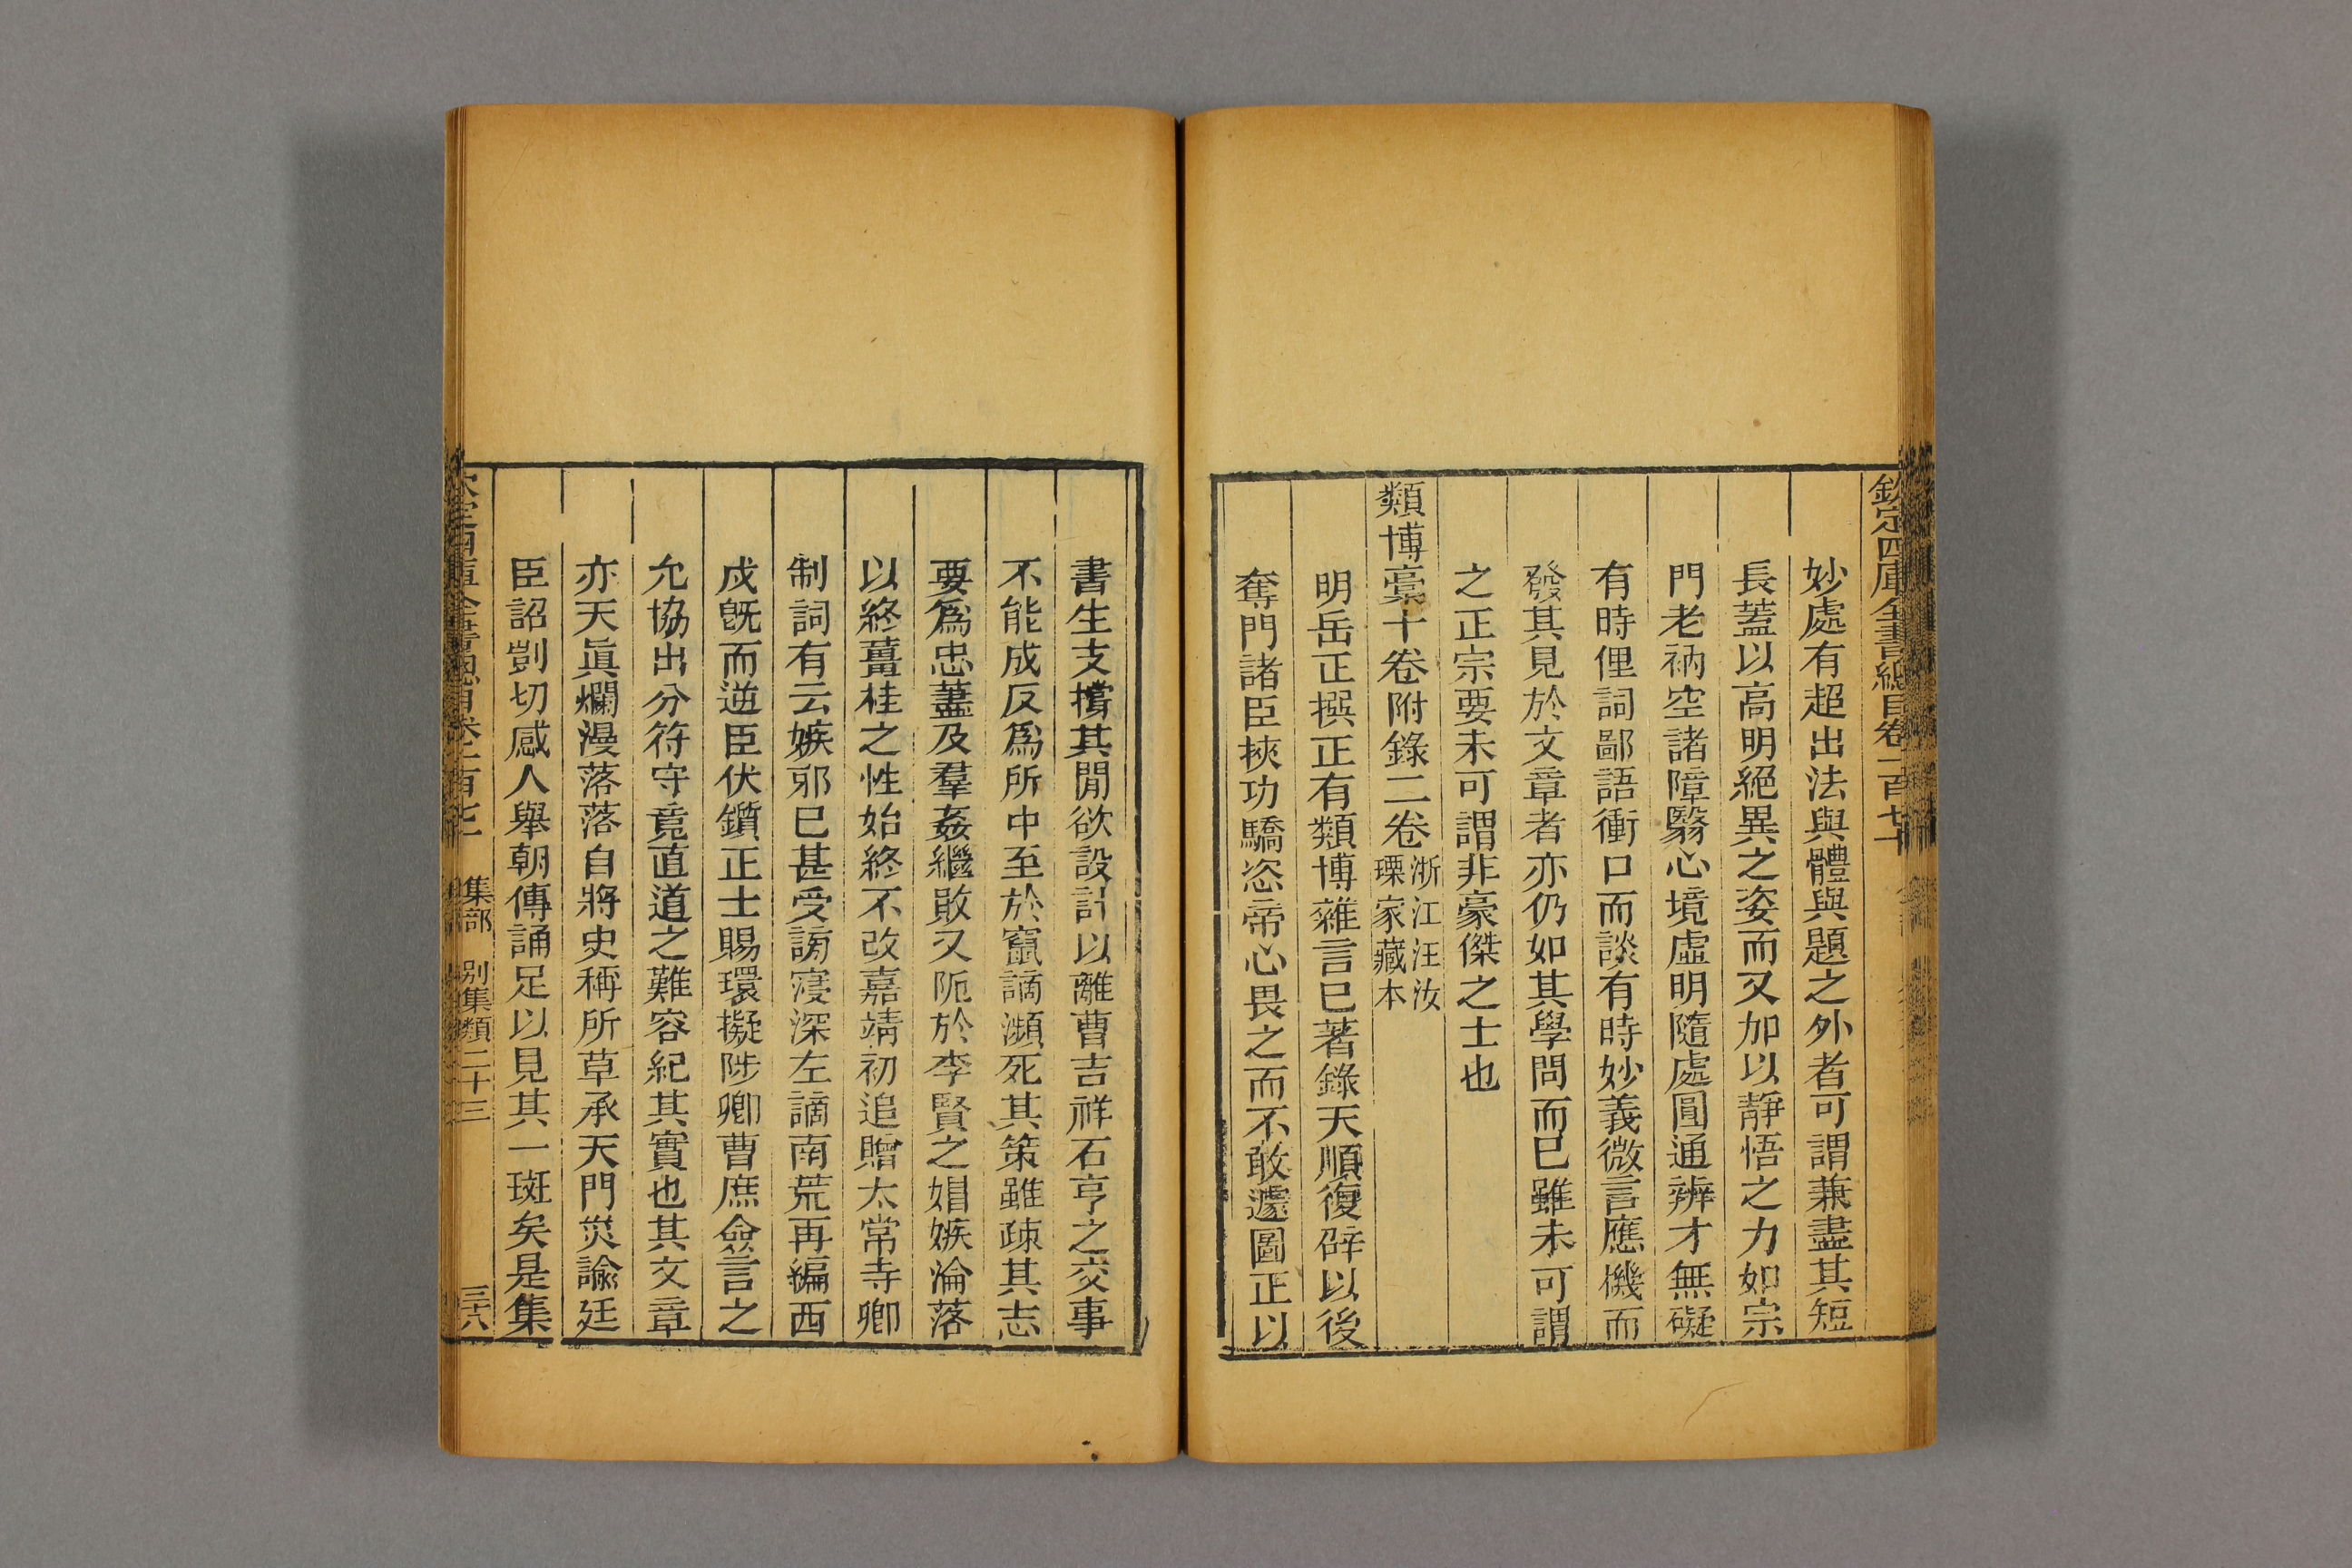 欽定四庫全書總目卷一百七十
妙處有超出法與體與題之外者可謂兼盡其短
長蓋以高明絕異之姿而又加以靜悟之力如宗
門老衲空諸障翳心境虛明隨處圓通辨才無礙
有時俚詞鄙語衝口而談有時妙義微言應機而
發其見於文章者亦仍如其學問而已雖未可謂
之正宗要未可謂非豪傑之士也
類博藁十卷附錄二卷
浙江汪汝
瑮家藏本
明岳正撰正有類博雜言已著錄天順復辟以後
奪門諸臣挾功驕恣帝心畏之而不敢遽圖正以
書生支撐其閒欲設計以離曹吉祥石亨之交事
不能成反爲所中至於竄謫瀕死其策雖疎其志
要爲忠藎及羣姦繼敗又阨於李賢之娼嫉淪落
以終薑桂之性始終不改嘉靖初追贈太常寺卿
制詞有云嫉邪已甚受謗寖深左謫南荒再編西
戍旣而逆臣伏鑕正士賜環擬陟卿曹庶僉言之
允協出分符守竟直道之難容紀其實也其文章
亦天眞爛漫落落自將史稱所草承天門災諭廷
臣詔剴切感人舉朝傳誦足以見其一斑矣是集
欽定四庫全書總目卷一百七十 集部 別集類二十三 三六